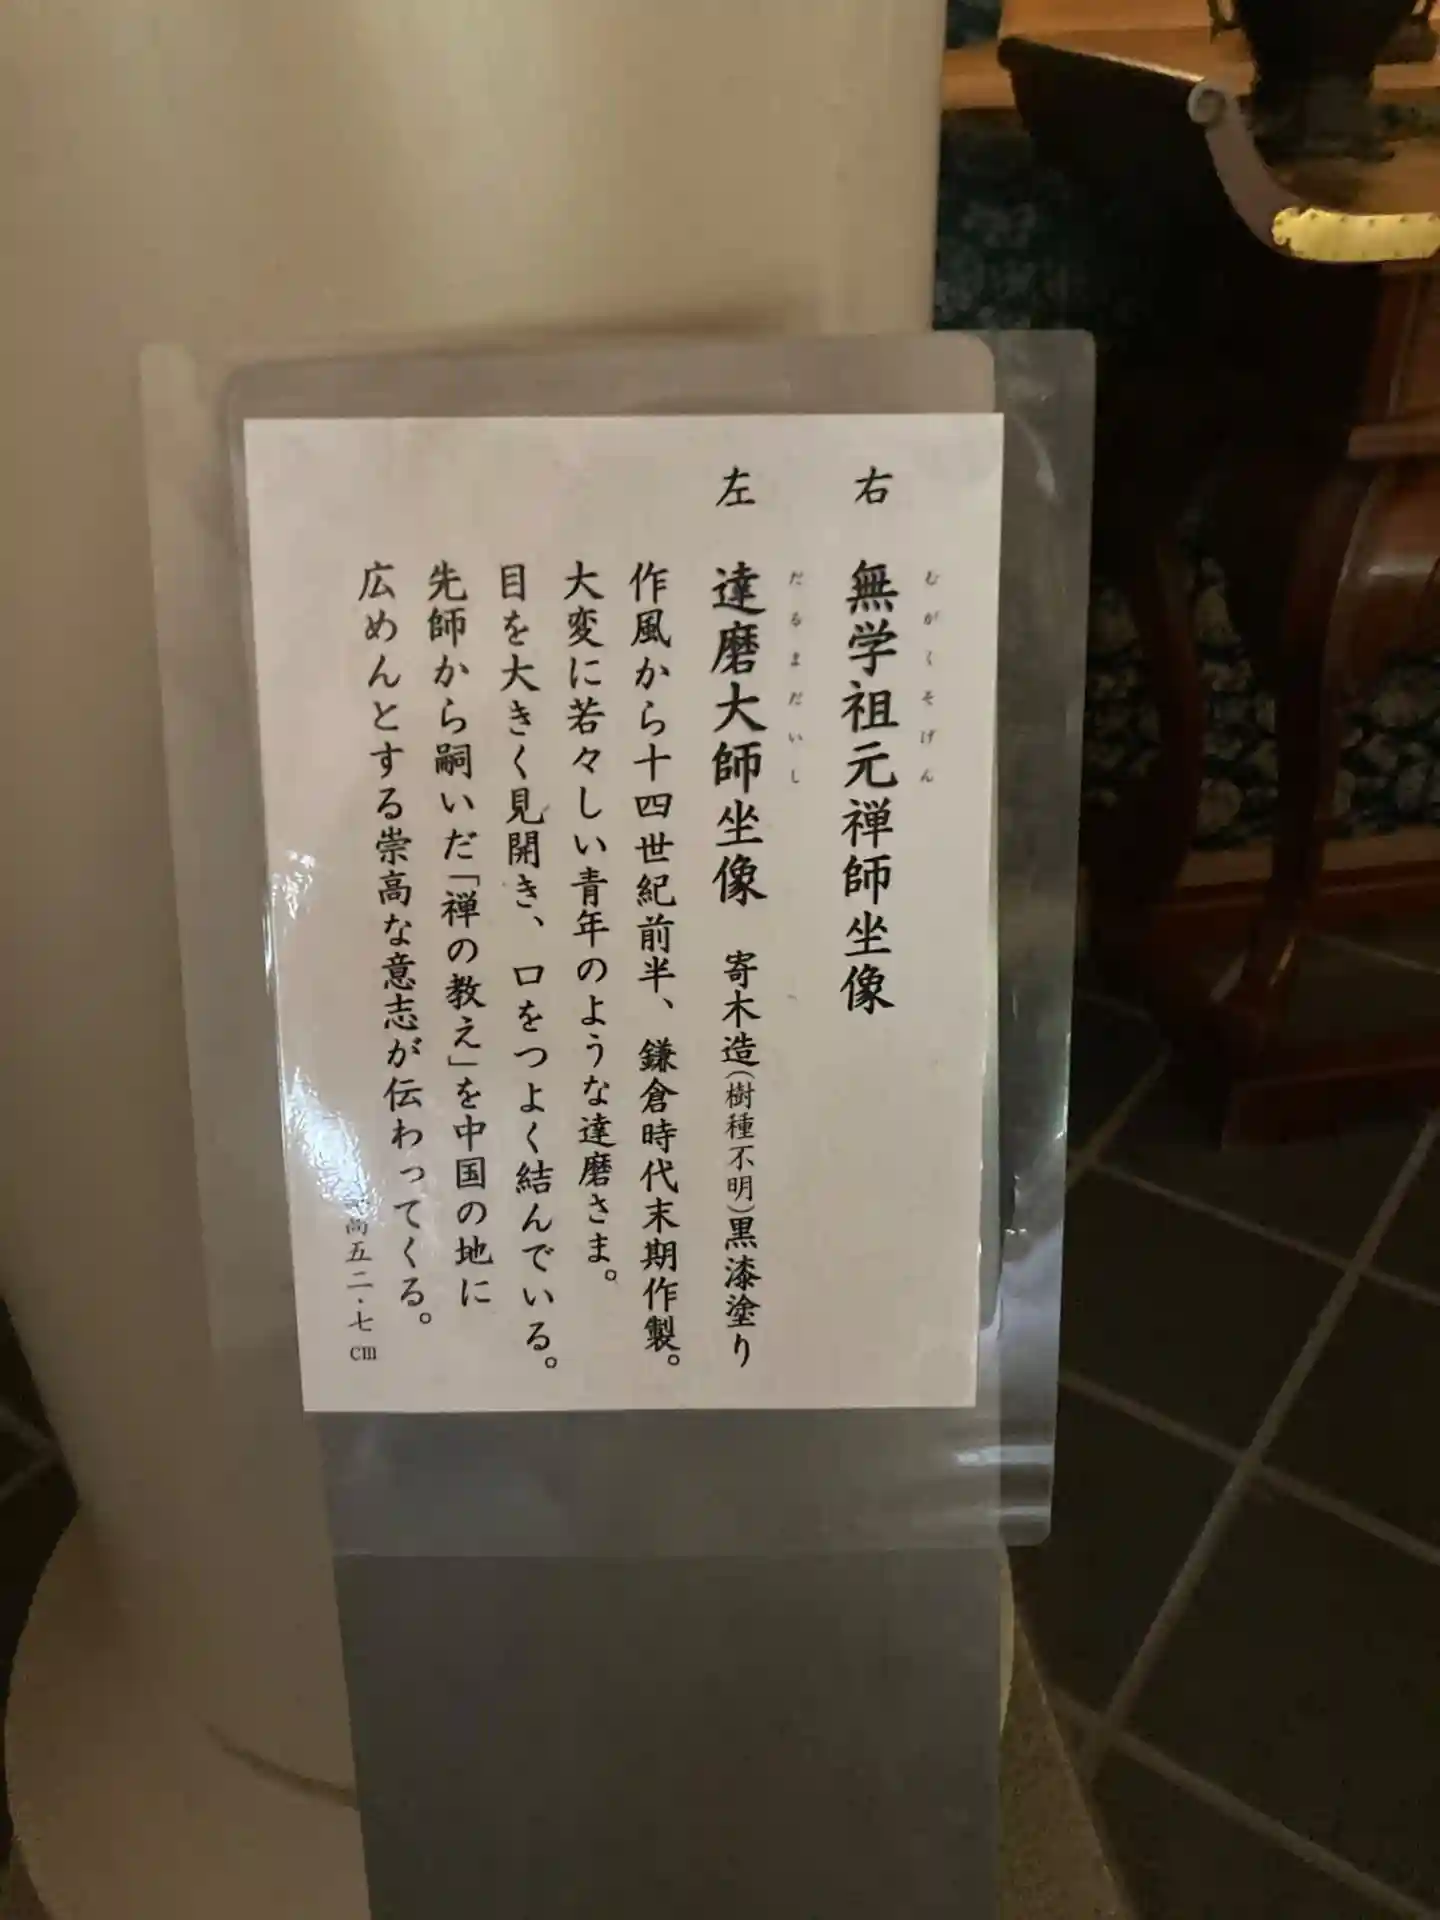 右 無学祖元禅師坐像
むがくそげん
左 達磨大師坐像 寄木造(樹種不明)黒漆塗り
だるまだいし
作風から十四世紀前半、鎌倉時代末期作製。
大変に若々しい青年のような達磨さま。
目を大きく見開き、口をつよく結んでいる。
先師から嗣いだ「禅の教え」を中国の地に
広めんとする崇高な意志が伝わってくる。
高五二・七cm